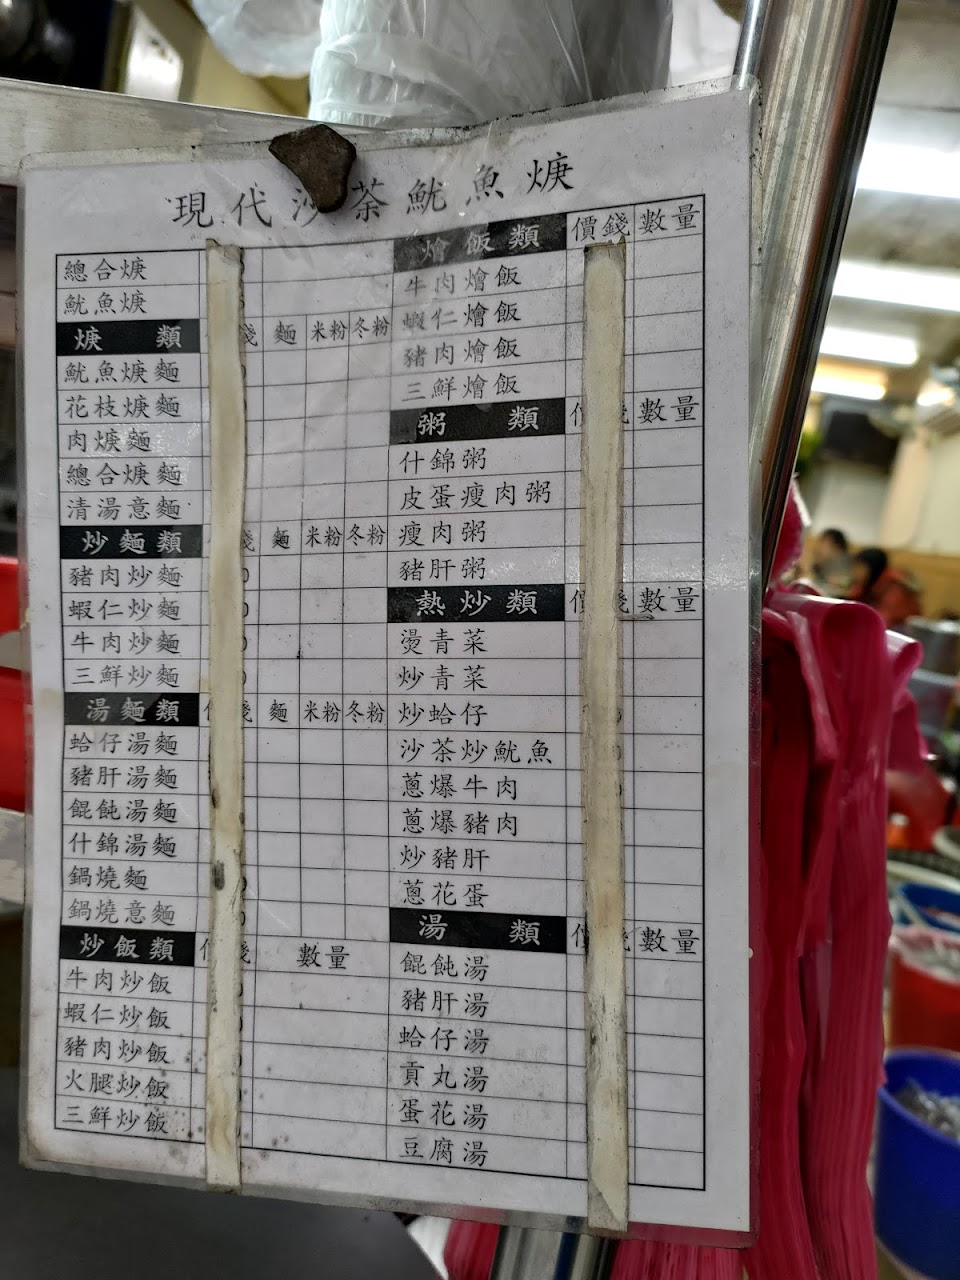 現代沙茶魷魚焿
總合焿
魷魚焿
焿類 麵 米粉 冬粉
魷魚焿麵
花枝焿麵
肉焿麵
總合焿麵
清湯意麵
炒麵類 錢 麵 米粉 冬粉
豬肉炒麵
蝦仁炒麵
牛肉炒麵
三鮮炒麵
湯麵類 價錢 麵 米粉 冬粉
蛤仔湯麵
豬肝湯麵
餛飩湯麵
什錦湯麵
鍋燒麵
鍋燒意麵
炒飯類 價錢 數量
牛肉炒飯
蝦仁炒飯
豬肉炒飯
火腿炒飯
三鮮炒飯
燴飯類 價錢 數量
牛肉燴飯
蝦仁燴飯
豬肉燴飯
三鮮燴飯
粥類 價錢 數量
什錦粥
皮蛋瘦肉粥
瘦肉粥
豬肝粥
熱炒類 價錢 數量
燙青菜
炒青菜
炒蛤仔
沙茶炒魷魚
蔥爆牛肉
蔥爆豬肉
炒豬肝
蔥花蛋
湯類 價錢 數量
餛飩湯
豬肝湯
蛤仔湯
貢丸湯
蛋花湯
豆腐湯